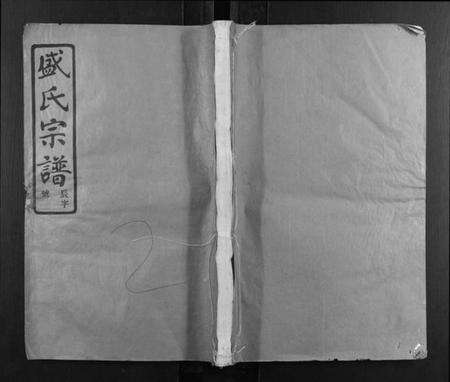 盛氏宗譜
辰字
號